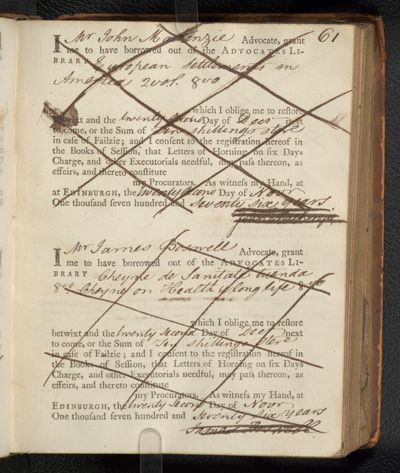 61
I Mr John McKenzie Advocate, grant
me to have borrowed out of the ADVOCATES LI-
BRARY European Settlements in
America 2 vol. 8vo
which I oblige me to restore
betwixt and the twenty second Day of Decr next
to come, or the Sum of Ten shillings Ster
in case of Failzie; and I consent to the registration hereof in
the Books of Session, that Letters of Horning on six Days
Charge, and other Executorials needful, may pass thereon, as
effeirs, and thereto constitute
my Procurators. As witness my Hand, at
at EDINBURGH, the twenty second Day of Novr
One thousand seven hundred Seventy six years
I Mr James Boswell Advocate, grant
me to have borrowed out of the ADVOCATES LI-
BRARY Cheyne de Sanitate tuenda
8vo Cheyne on Health & long life 8vo
which I oblige me to restore
betwixt and the twenty second Day of Decr next
to come, or the Sum of Ten shillings Ster
in case of Failzie; and I consent to the registration hereof in
the Books of Session, that Letters of Horning on six Days
Charge, and other Executorials needful, may pass thereon, as
effeirs, and thereto constitute
my Procurators. As witness my Hand, at
EDINBURGH, the twenty second Day of Novr
One thousand seven hundred and seventy six years
James Boswell.